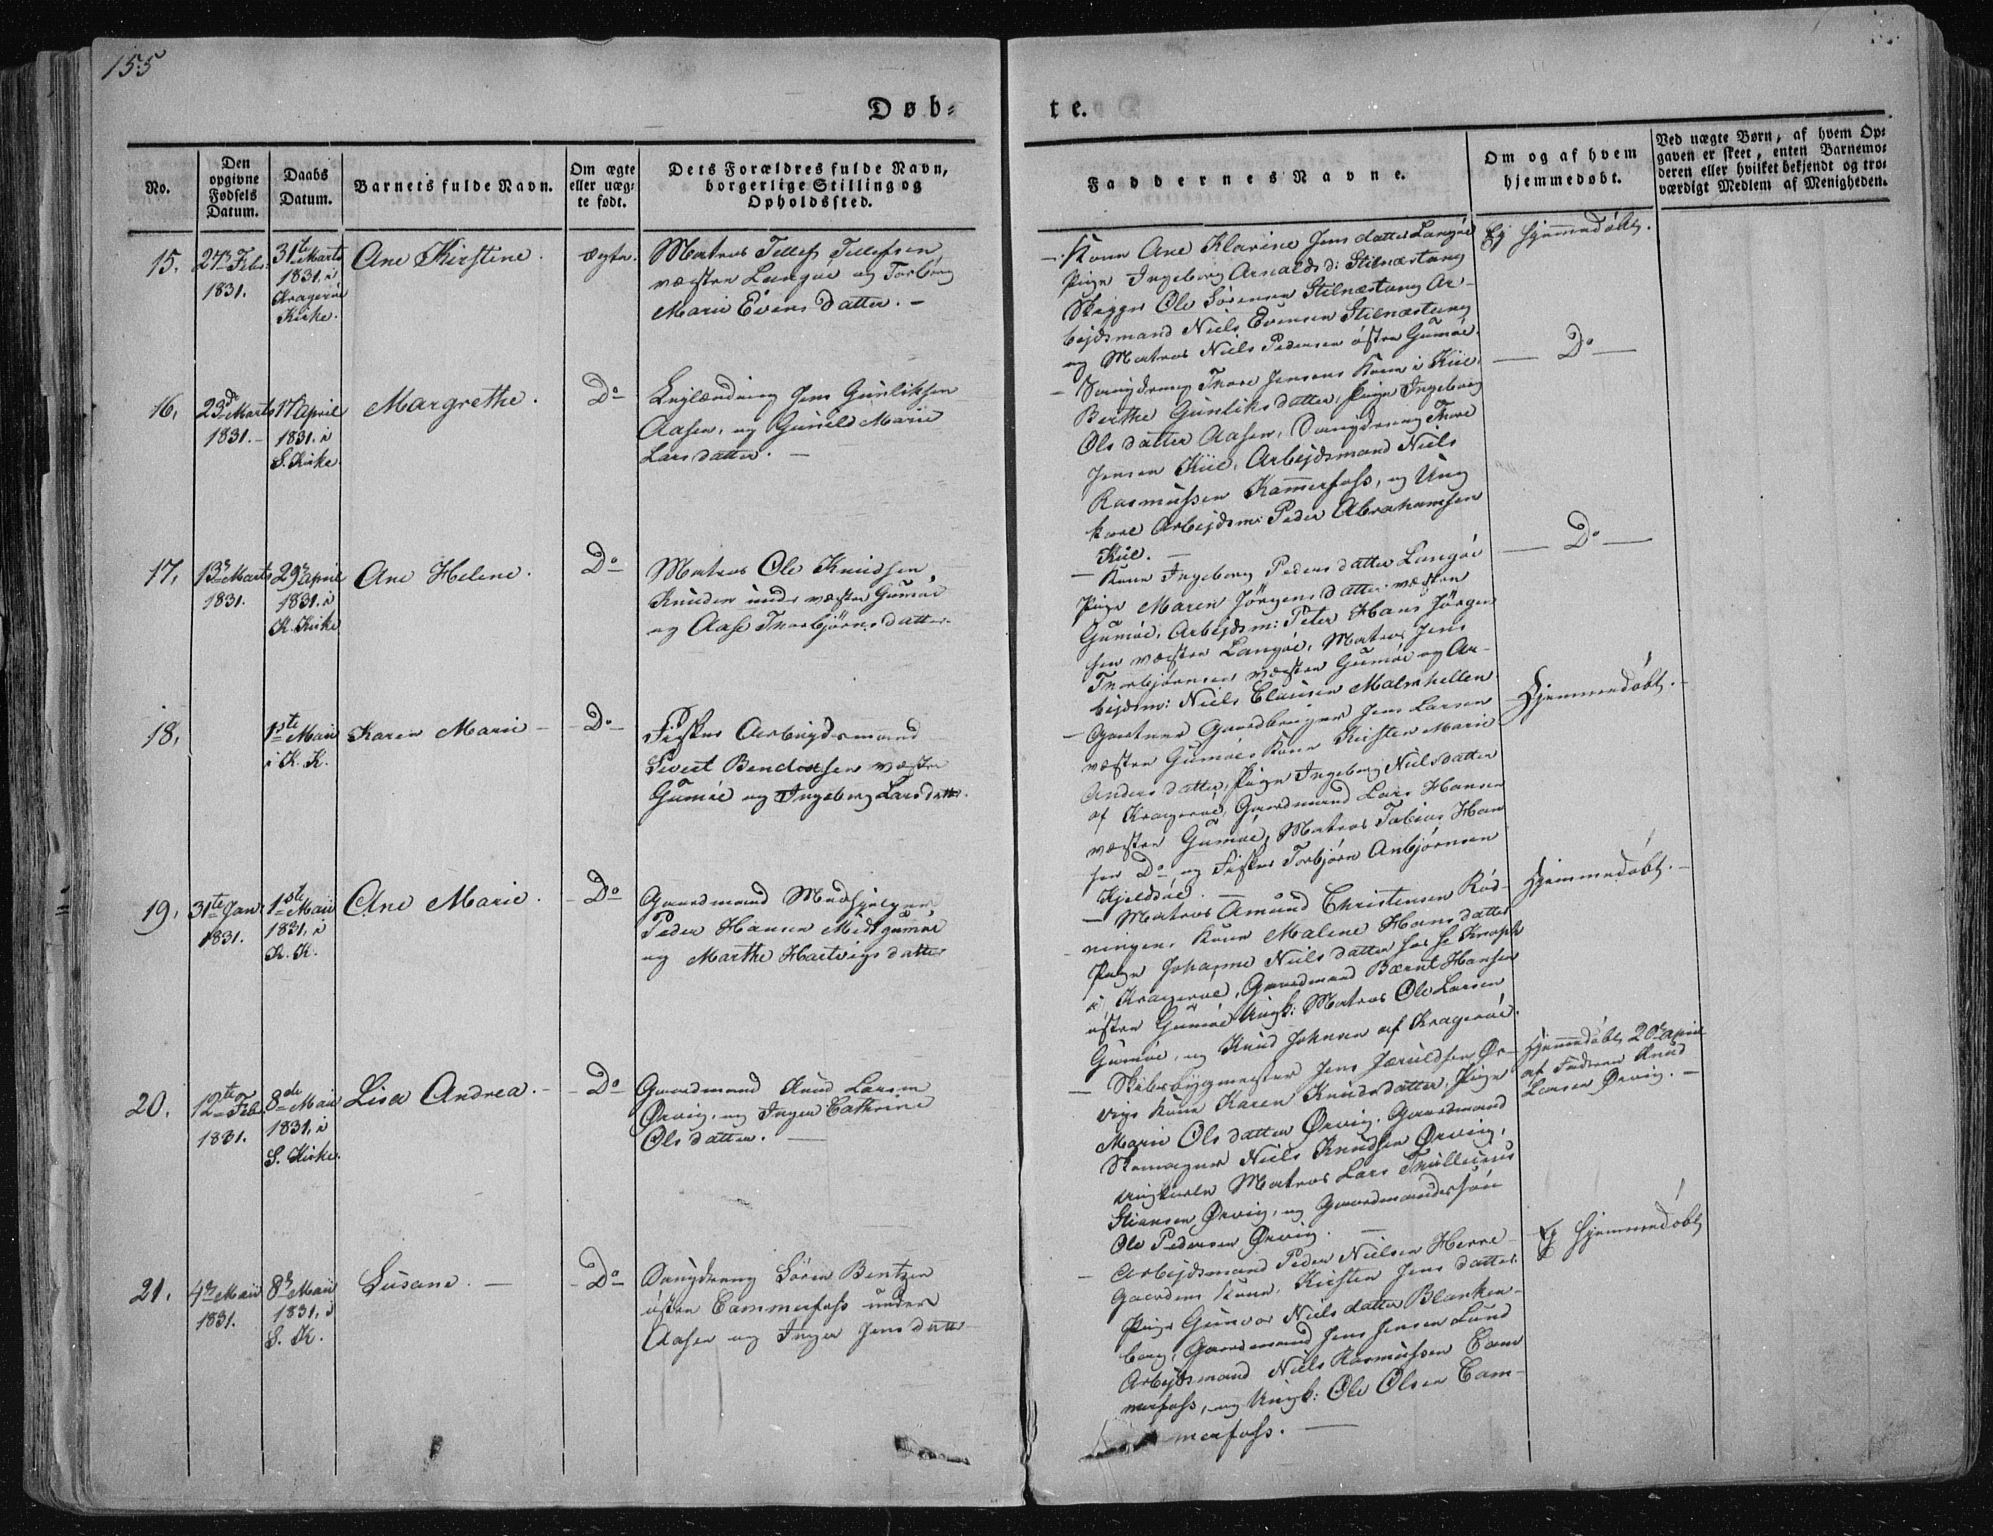 155
Døb-
te.
No.
Den opgivne Fødsels Datum.
Daabs Datum.
Barnets fulde Navn.
Om ægte eller uægte født.
Dets Forældres fulde Navn, borgerlige Stilling og Opholdssted.
Faddernes Navne.
Om og af hvem hjemmedøbt.
Ved uægte Børn, af hvem Opgaven er skeet, enten Barnemoderen eller hvilket bekjendt og troværdigt Medlem af Menigheden.
15.
27de Febr. 1831.
31te Marts 1831. i Kragerøe Kirke.
Ane Kirstine.
ægte.
Matros Tellef Tellefsen
væstre Langøe og Torborg
Marie Evensdatter. –
– Kone Ane Klarine Jensdatter Langøe
Pige Ingeborg Arnaldsd: Stilnæstang
Skipper Ole Sørensen Stilnæstang Ar-
bejdsmand Niels Evensen Stilnæstang
og Matros Niels Pedersen østre Gumøe.
Ej hjemmedøbt.
16.
23de Marts 1831. –
17 April 1831. i S. Kirke.
Margrethe.
Do
Inglænding Jens Gunliksen
Aasen, og Gunild Marie
Larsdatter. –
– Saugdreng Thore Jensens Kone i Kiil.
Berthe Gunliksdatter, Pige Ingeborg
Olsdatter Aasen, Saugdreng Thore
Jensen Kiil, Arbejdsmand Niels
Rasmussen Kammerfoss, og Ung
karl Arbejdsm: Peder Abrahamsen
Kiil. –
– Do –
17.
13de Marts 1831.
29de April 1831. i K. Kirke
Ane Helene.
Do
Matros Ole Knudsen
Knuden under væstre Gumøe
og Aase Thorbjørnsdatter.
– Kone Ingeborg Pedersdatter Langøe
Pige Maren Jørgensdatter væstre
Gumøe, Arbejdsm: Peter Hans Jørgen
sen væstre Langøe, Matros Jens
Thorbjørnsen væstre Gumøe og Ar-
bejdsm: Niels Clausen Malmhellen
– Do –
18.
1ste Maii i K. K.
Karen Marie –
– Do –
Fisker Arbejdsmand
Sivert Bendixsen væstre
Gumøe og Ingeborg Larsdatter.
– Gaardbruger Jens Larsen
væstre Gumøes Kone Kirsten Marie
Andersdatter, Pige Ingeborg Nielsdatter
af Kragerøe, Gaardmand Lars Hansen
væstre Gumøe, Matros Tobias Han
sen Do og Fisker Torbjørn Anbjørnsen
Kjeldsøe. –
Hjemmedøbt. –
19.
31te Jan: 1831.
1ste Maii 1831, i K. K.
Ane Marie.
– Do
Gaardmand Medhjelper
Peder Hansen Midtgumøe
og Marthe Hartvigsdatter
– Matros Amund Christensen Rød-
ningens Kone Malene Hansdatter
Pige Johanne Nielsdatter hos H Knoph
i Kragerøe, Gaardmand Bærnt Hansen
østre Gumøe Ungk: Matros Ole Larsen
Gumøe, og Knud Johnsen af Kragerøe.
Hjemmedøbt. –
20.
12te Feb. 1831.
8de Maii 1831, i S. Kirke.
Lisa Andrea. –
– Do
Gaardmand Knud Larsen
Ørvig, og Inger Cathrine
Olsdatter. –
– Skibsbygmester Jens Jæruldsen Ør-
vigs Kone Karen Knudsdatter, Pige
Marie Olsdatter Ørvig. Gaardmand
Skomager Niels Knudsen Ørvig,
Ungkarle Matros Lars Thullinius
Stiansen Ørvig, og Gaardmandssøn
Ole Pedersen Ørvig. –
Hjemmedøbt 20de April
af Faderen Knud
Larsen Ørvig. –
21.
4de Maii 1831.
8de Maii 1831, i S. K.
Susane. –
– Do
Saugdreng Søren Bentzen
østre Cammerfoss under
Aasen og Inger Jensdatter
– Arbejdsmand Peder Nielsen Herre-
gaardens Kone, Kirsten Jensdatter.
Pige Gunvor Nielsdatter Blanken-
borg, Gaardmand Jens Jensen Lund
Arbejdsmand Niels Rasmussen Cam
merfoss, og Ungk: Ole Olsen Cam-
merfoss. –
Ej hjemmedøbt